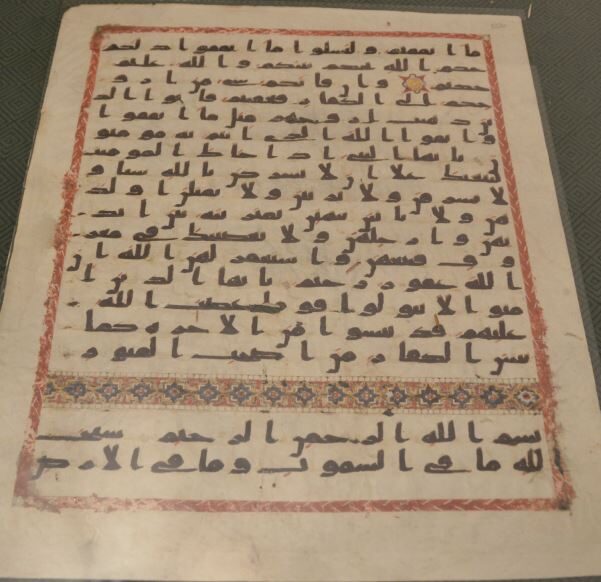 ما انفقتم وليسلوا ما انفقوا ذلكم
حكم الله يحكم بينكم والله عليم
حكيم وان فاتكم شى من ازو
جكم الى الكفار فعقبتم فاتوا الذ
ين ذهبت ازوجهم مثل ما انفقوا
واتقوا الله الذى انتم به مومنو
ن يايها النبى اذا جاك المومنت
يبايعنك على ان لا يشركن بالله شيا و
لا يسرقن ولا يزنين ولا يقتلن اولد
هن ولا ياتين ببهتن يفترينه بين ايد
يهن وارجلهن ولا يعصينك فى معر
وف فبايعهن واستغفر لهن الله ان
الله غفور رحيم يايها الذين ا
منوا لا تتولوا قوما غضب الله
عليهم قد يئسوا من الاخرة كما
يئس الكفار من اصحب القبور
بسم الله الرحمن الرحيم سبح
لله ما فى السموت وما فى الارض